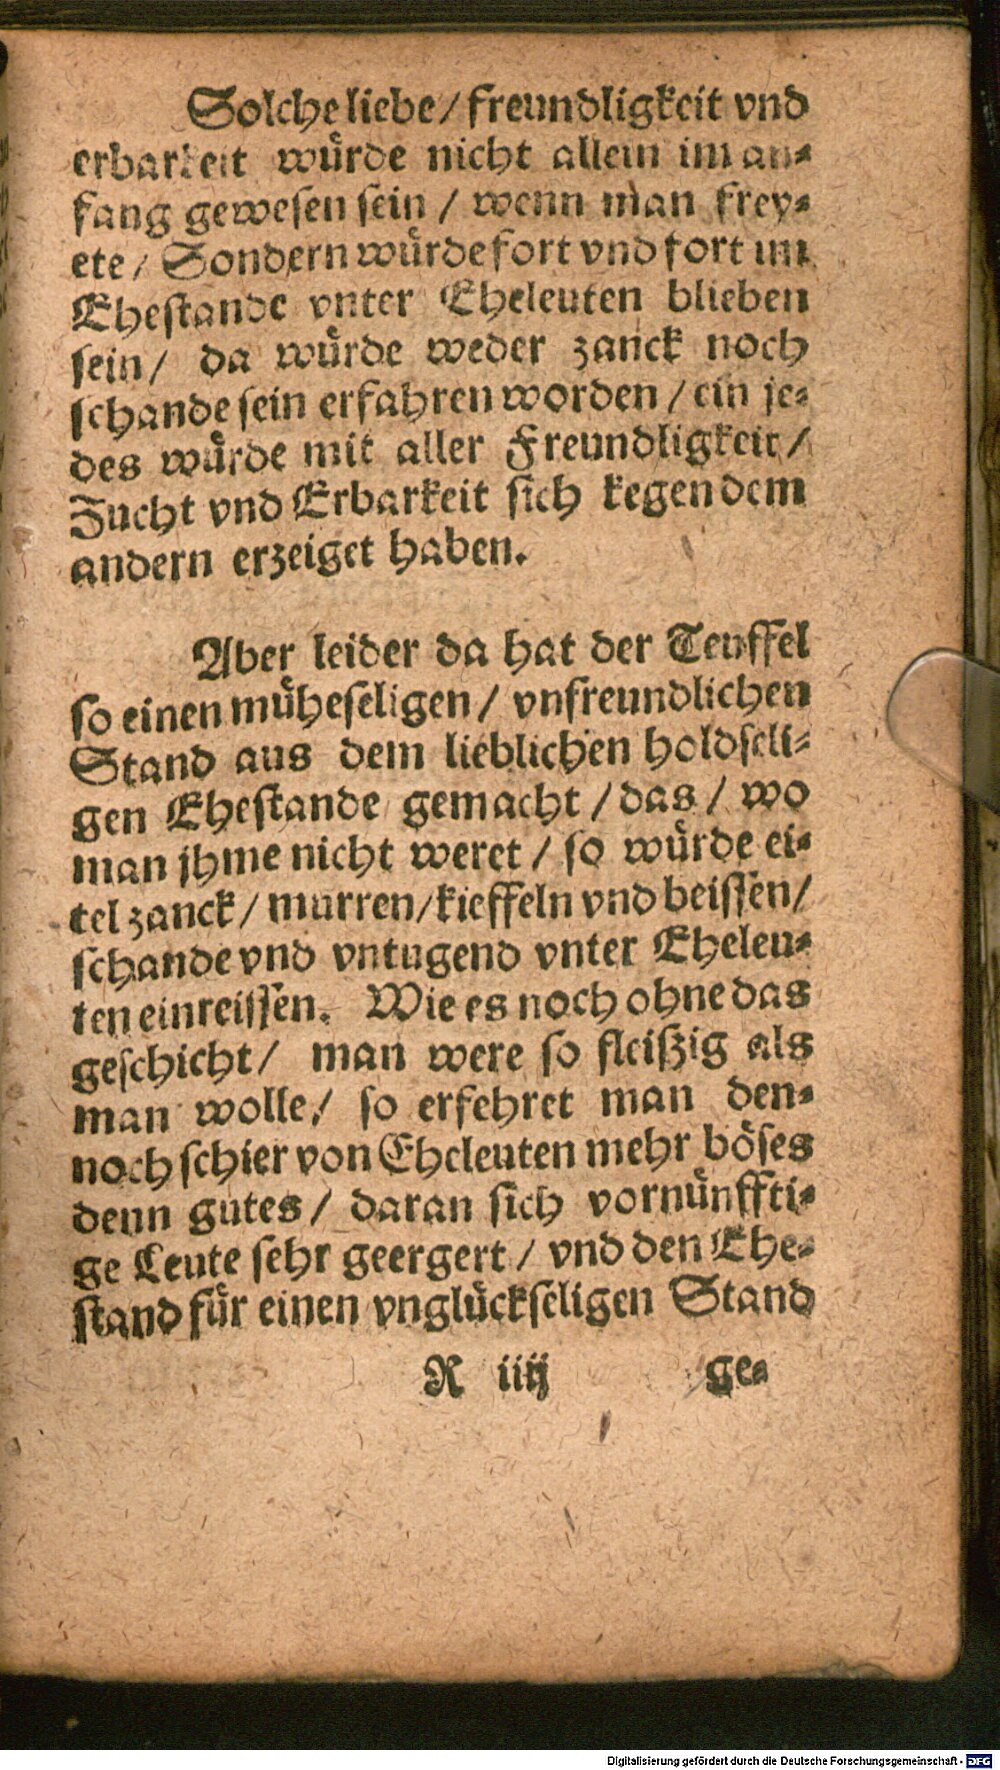 Solche liebe/ freundligkeit vnd
erbarkeit würde nicht allein im an-
fang gewesen sein / wenn man frey-
ete/ Sondern würde fort vnd fort im
Ehestande vnter Eheleuten blieben
sein/ da würde weder zanck noch
schande sein erfahren worden / ein je-
des würde mit aller Freundligkeit/
Zucht vnd Erbarkeit sich kegen dem
andern erzeiget haben.
Aber leider da hat der Teuffel
so einen müheseligen/ vnfreundlichen
Stand aus dem lieblichen holdseli-
gen Ehestande gemacht / das / wo
man jhme nicht weret / so würde ei-
tel zanck/ murren/kieffeln vnd beissen/
schande vnd vntugend vnter Eheleu-
ten einreissen. Wie es noch ohne das
geschicht/ man were so fleiszig als
man wolle/ so erfehret man den-
noch schier von Eheleuten mehr böses
denn gutes / daran sich vornünffti-
ge Leute sehr geergert / vnd den Ehe-
stand für einen vnglückseligen Stand
R iiij ge-
Digitalisierung gefördert durch die Deutsche Forschungsgemeinschaft - DFG